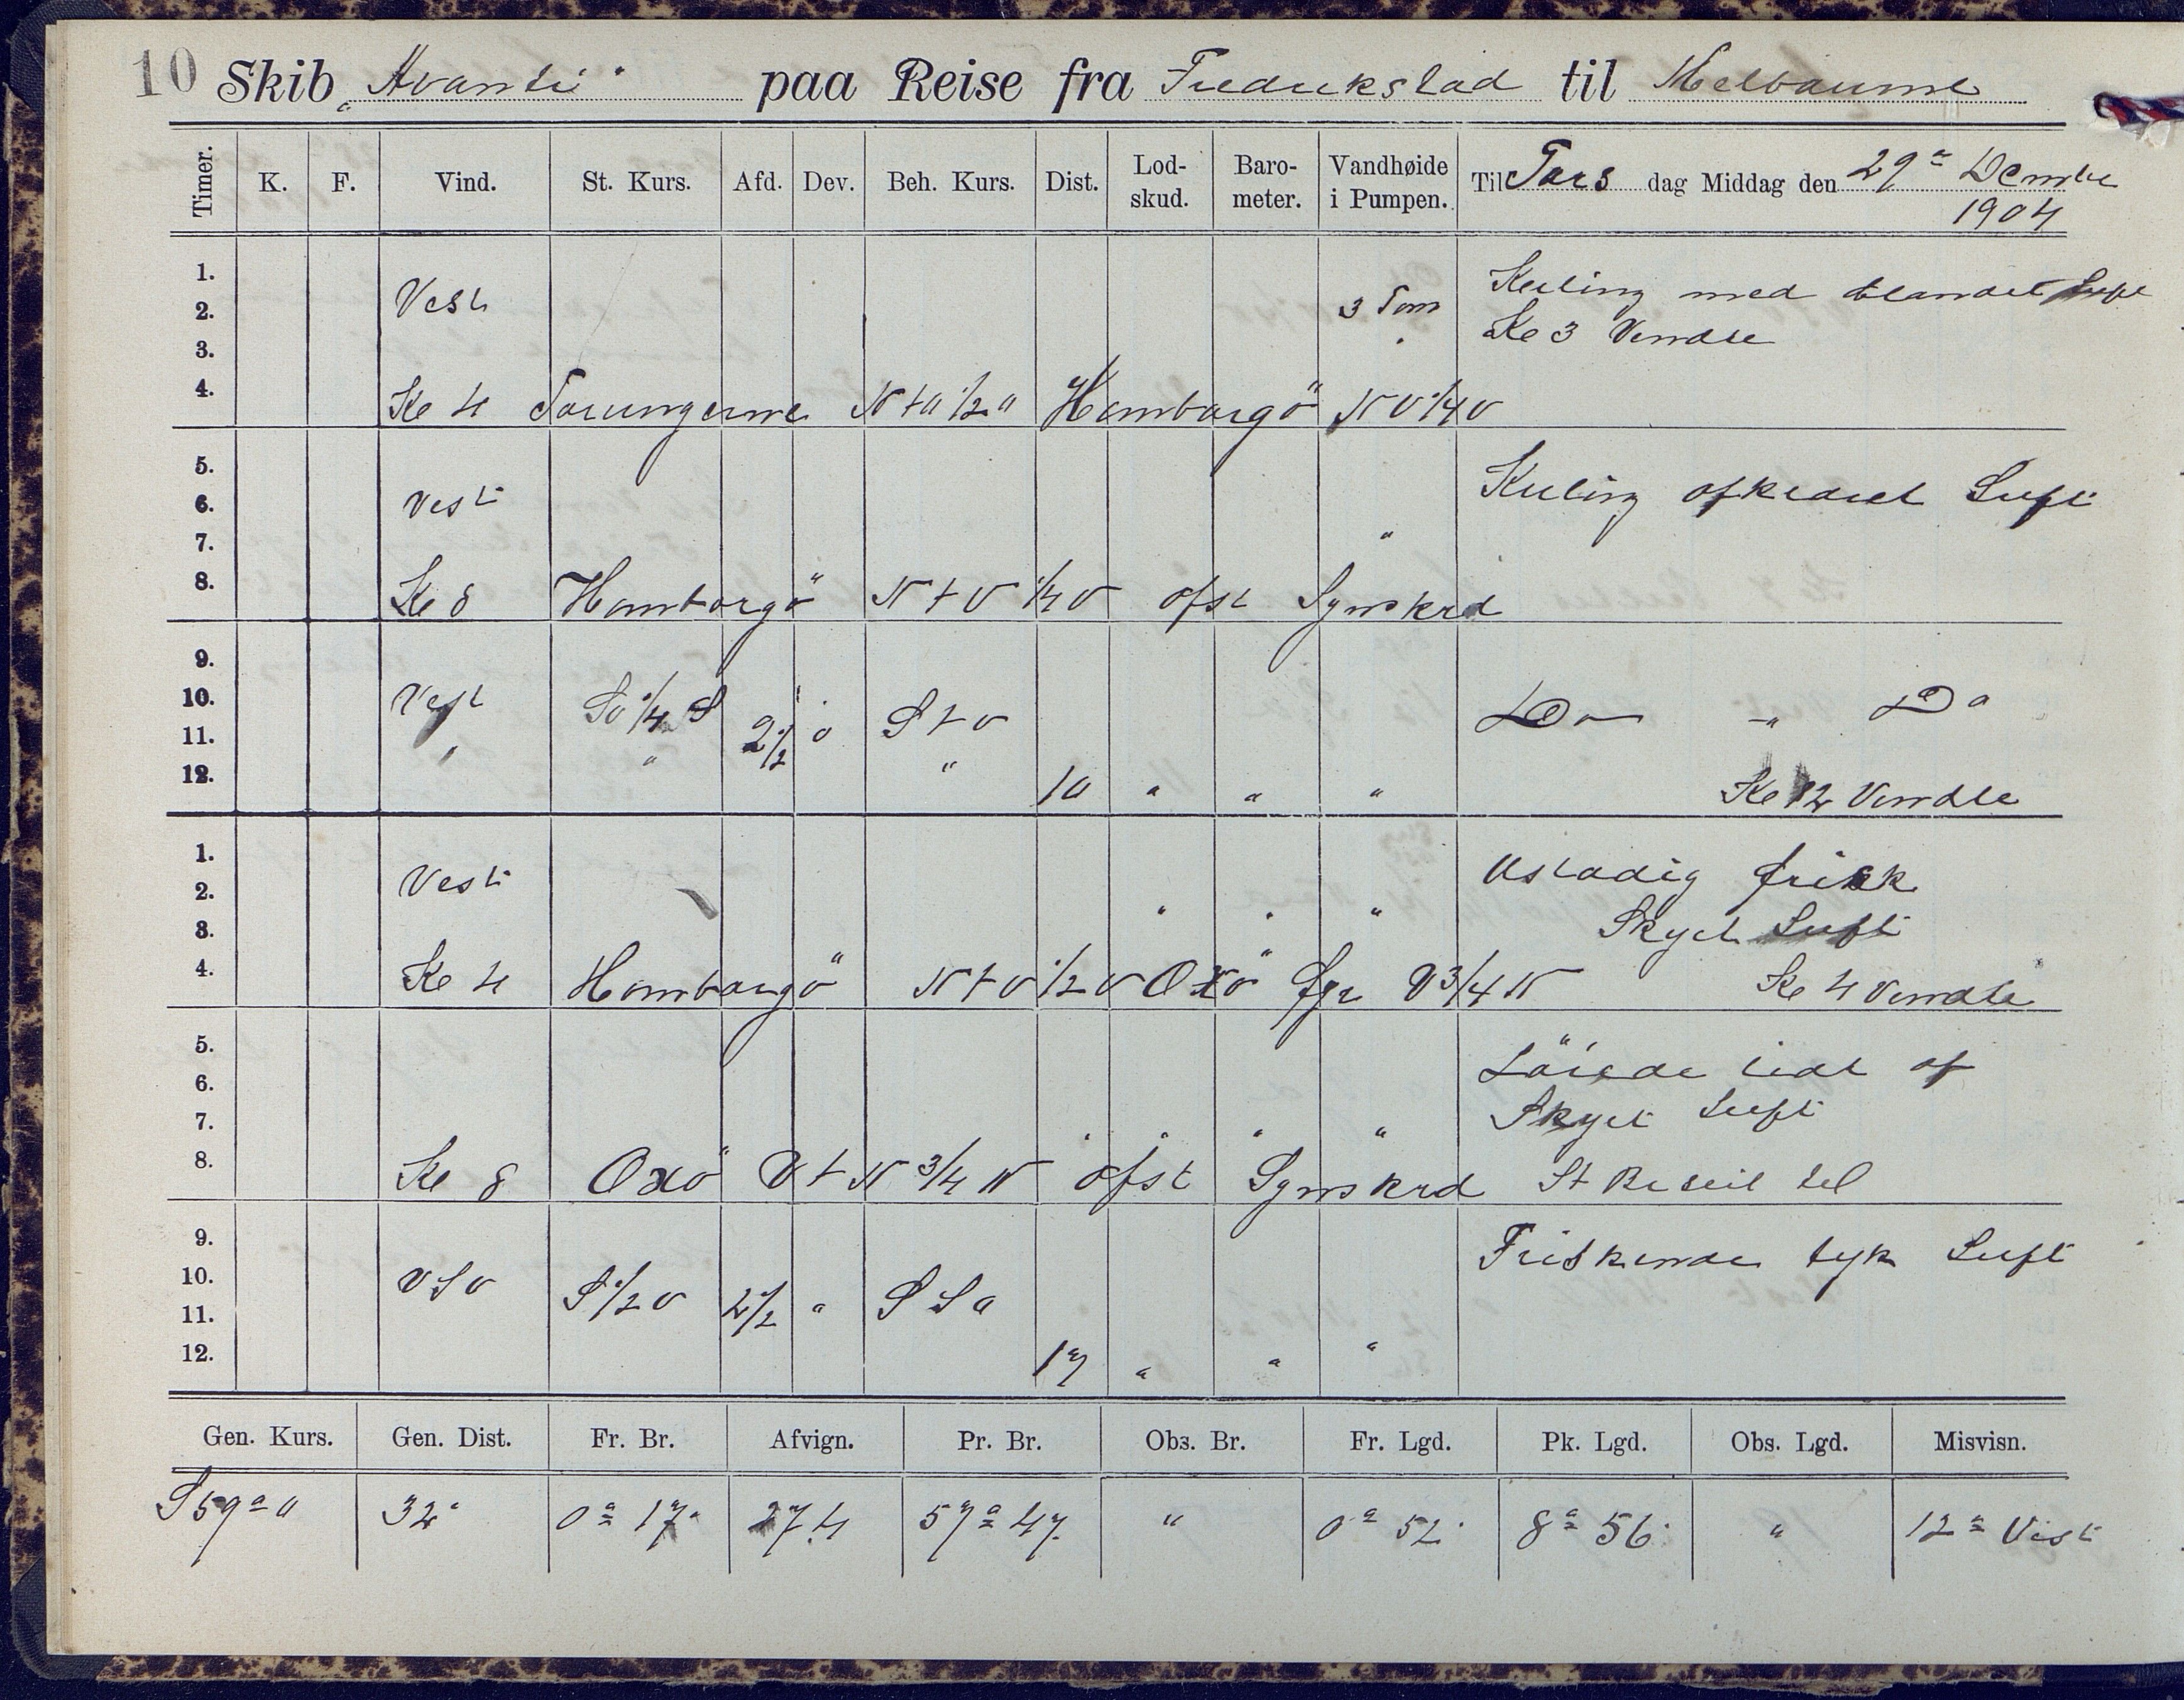 10 Skib „Avanti" paa Reise fra Fredrikstad til Melbourne
Timer. K. F. Vind. St. Kurs. Afd. Dev. Beh. Kurs. Dist. Lod-skud. Baro-meter. Vandhøide i Pumpen. Til Tors dag Middag den 29= Dember
1904
1.
2. Vest 3 Tom Kuling med blandet Luft
3. Ke 3 Vendte
4. Ke 4 Torungerne N t O 1/2 O Homborgö N V 1/4 V
5.
6. Vest Kuling afklaret Luft
7. "
8. Ke 8 Homborgö N t V 1/4 V afst Synskrd
9.
10. Vest SV 1/4 S 2 1/2 0 S t V Do " Do
11. " " "
12. 10 " " " Ke 12 Vendte
1.
2. Vest Ustadig frisk
3. " " " Skyet Luft
4. Ke 4 Homborgö N t V 1/2 V Oxö fyr V 3/4 N Ke 4 Vendte
5. Löiede lidt af
6. Skyet Luft
7. " " " "
8. Ke 8 Oxö V t N 3/4 N afst Synskrd St Beseil til
9. Friskende tyk Luft
10. VSV S 1/2 V 2 1/2 " S S O
11.
12. 17 " " "
Gen. Kurs. Gen. Dist. Fr. Br. Afvign. Pr. Br. Obs. Br. Fr. Lgd. Pk. Lgd. Obs. Lgd. Misvisn.
S 59= O 32' 0= 17' 27.4 57= 47' " 0= 52' 8= 56' " 12= Vest